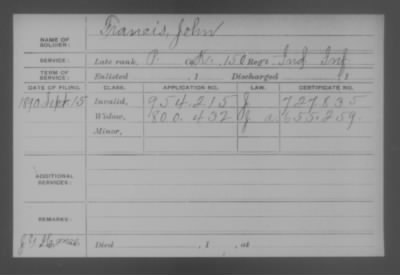 NAME OF SOLDIER: Francis, John
SERVICE: Late rank, P. Co. K. 150 Reg't Ind Inf
TERM OF SERVICE: Enlisted , 1 Discharged , 1
DATE OF FILING. CLASS. APPLICATION NO. LAW. CERTIFICATE NO.
1890 Sept 15 Invalid, 954.215 J 727835
Widow, 800.432 J 655.259.
Minor,
ADDITIONAL SERVICES:
REMARKS:
Died , 1 , at